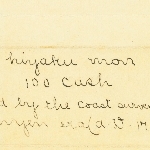 hiyaku mon
100 Cash
d by the coast surve
era (a.D. 17